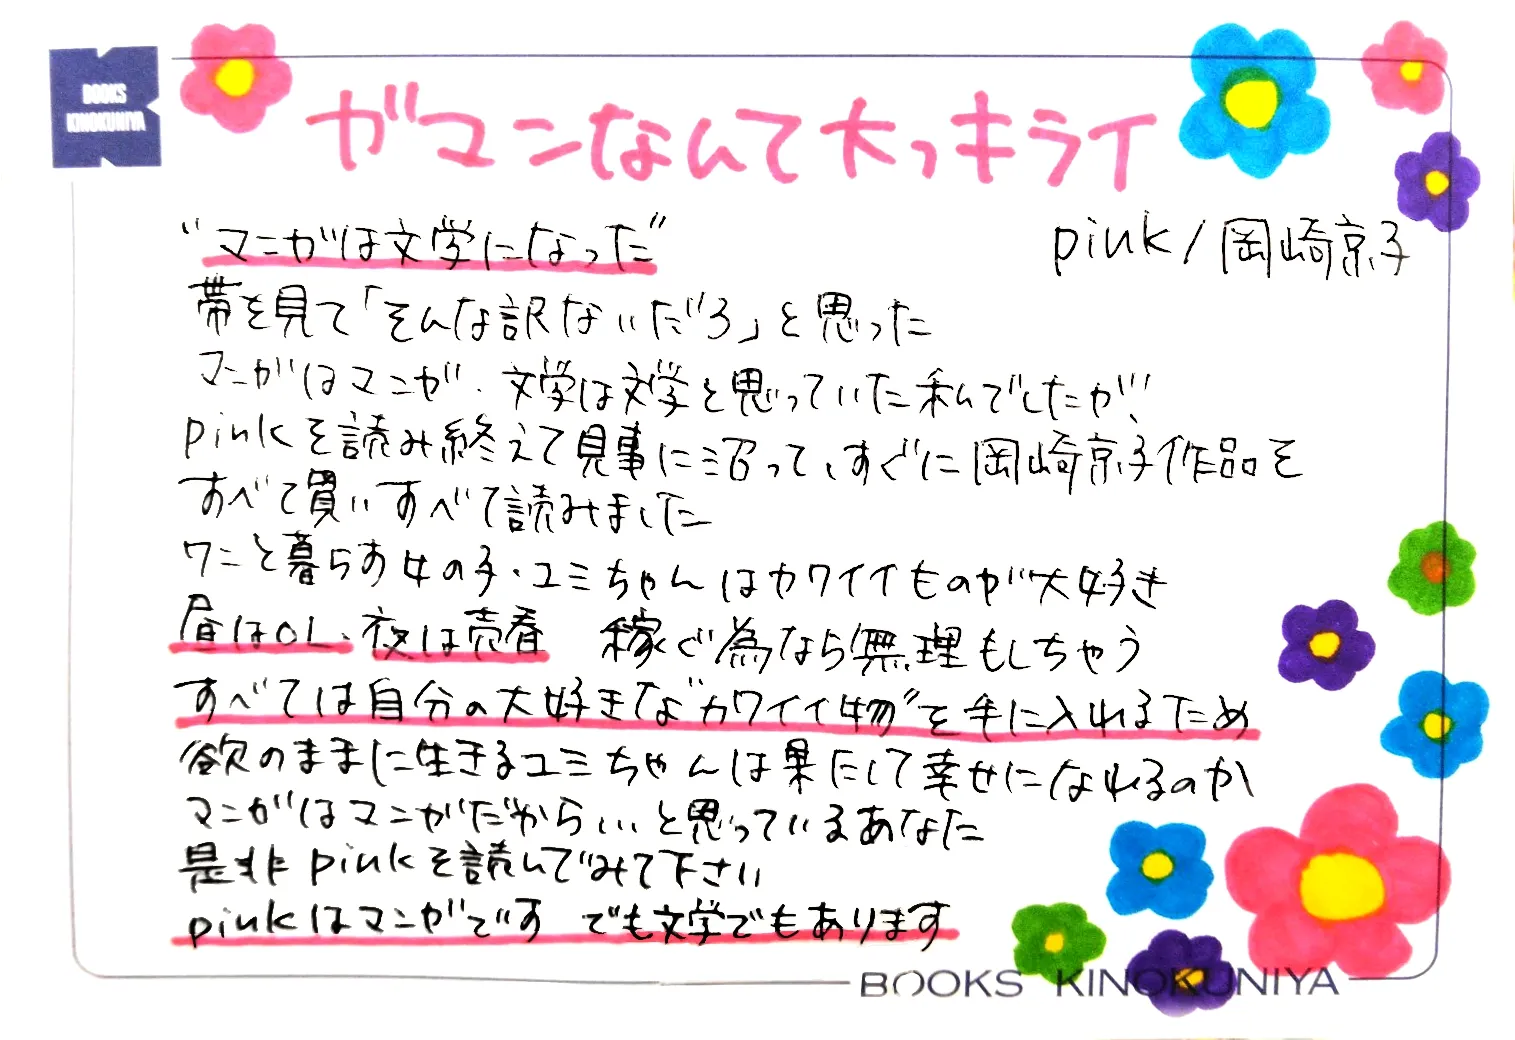 BOOKS
KINOKUNIYA
ガマンなんて大っキライ
"マンガは文学になった"
pink/岡崎京子
帯を見て「そんな訳ないだろ」と思った
マンガはマンガ、文学は文学と思っていた私でしたが、
pinkを読み終えて見事に沼って、すぐに岡崎京子作品を
すべて買いすべて読みました
ワニと暮らす女の子・ユミちゃんはカワイイものが大好き
昼はOL、夜は売春 稼ぐ為なら無理もしちゃう
すべては自分の大好きな"カワイイ物"を手に入れるため
欲のままに生きるユミちゃんは果たして幸せになれるのか
マンガはマンガだから…と思っているあなた
是非pinkを読んでみて下さい
pinkはマンガです でも文学でもあります
BOOKS KINOKUNIYA